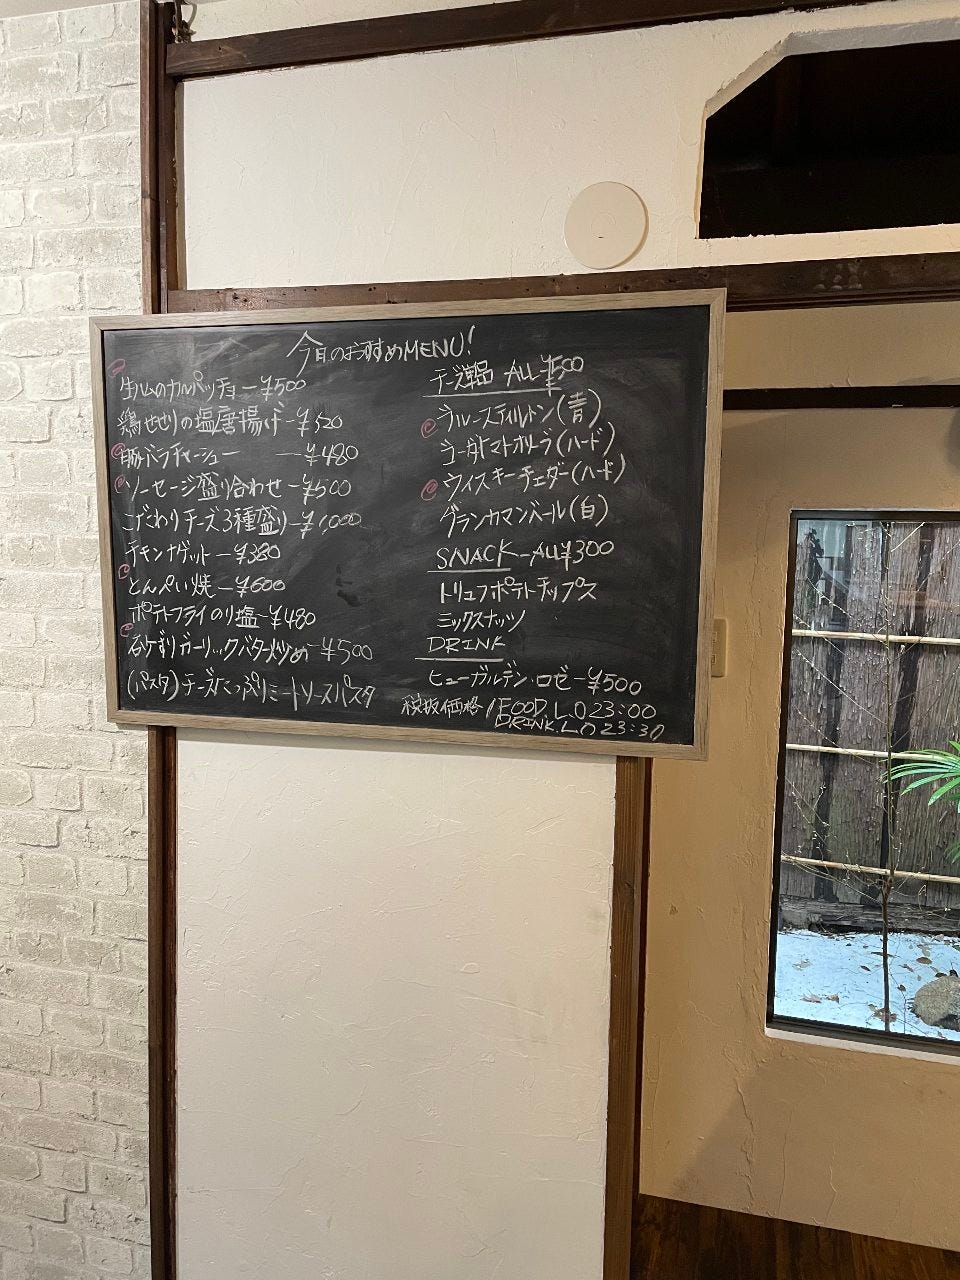 今日のおすすめMENU!
生ハムのカルパッチョ ー¥500
鶏せせりの塩唐揚げ ー¥520
豚バラチャーシュー ー¥480
ソーセージ盛り合わせ ー¥500
こだわりチーズ3種盛り ー¥1,000
チキンナゲット ー¥380
とんぺい焼 ー¥600
ポテトフライのり塩 ー¥480
砂ずりガーリックバター炒め ー¥500
(パスタ)チーズたっぷりミートソースパスタ
チーズ単品 ALL¥500
ブルースティルトン(青)
ゴーダトマトオリーブ(ハード)
ウイスキーチェダー(ハード)
グランカマンベール(白)
SNACK ーALL¥300
トリュフポテトチップス
ミックスナッツ
DRINK
ヒューガルデン・ロゼ ー¥500
税抜価格 / FOOD L.O 23:00
DRINK. L.O 23:30